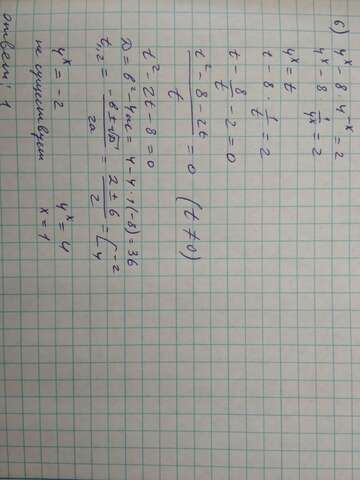 б) 4ˣ - 8 · 4⁻ˣ = 2
4ˣ - 8 · 1/4ˣ = 2
4ˣ = t
t - 8 · 1/t = 2
t - 8/t - 2 = 0
(t² - 8 - 2t)/t = 0 (t ≠ 0)
t² - 2t - 8 = 0
D = b² - 4ac = 4 - 4 · 1(-8) = 36
t₁,₂ = (-b ± √D)/2a = (2 ± 6)/2 = [-2 4
4ˣ = -2 4ˣ = 4
не существует x = 1
ответ: 1